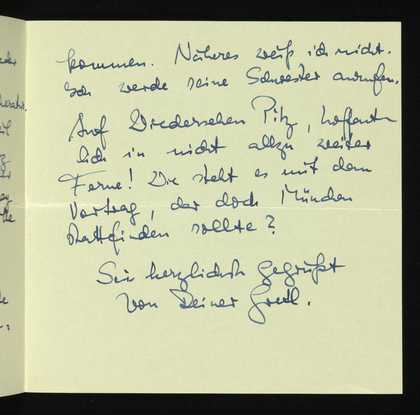 kommen. Näheres weiß ich nicht.
Ich werde seine Schwester anrufen.
Auf Wiedersehen Pitz, hoffent
lich in nicht allzu weiter
Ferne! Wie steht es mit dem
Vortrag, der doch München
stattfinden sollte?
Sei herzlichst gegrüßt
von Deiner Gretl.